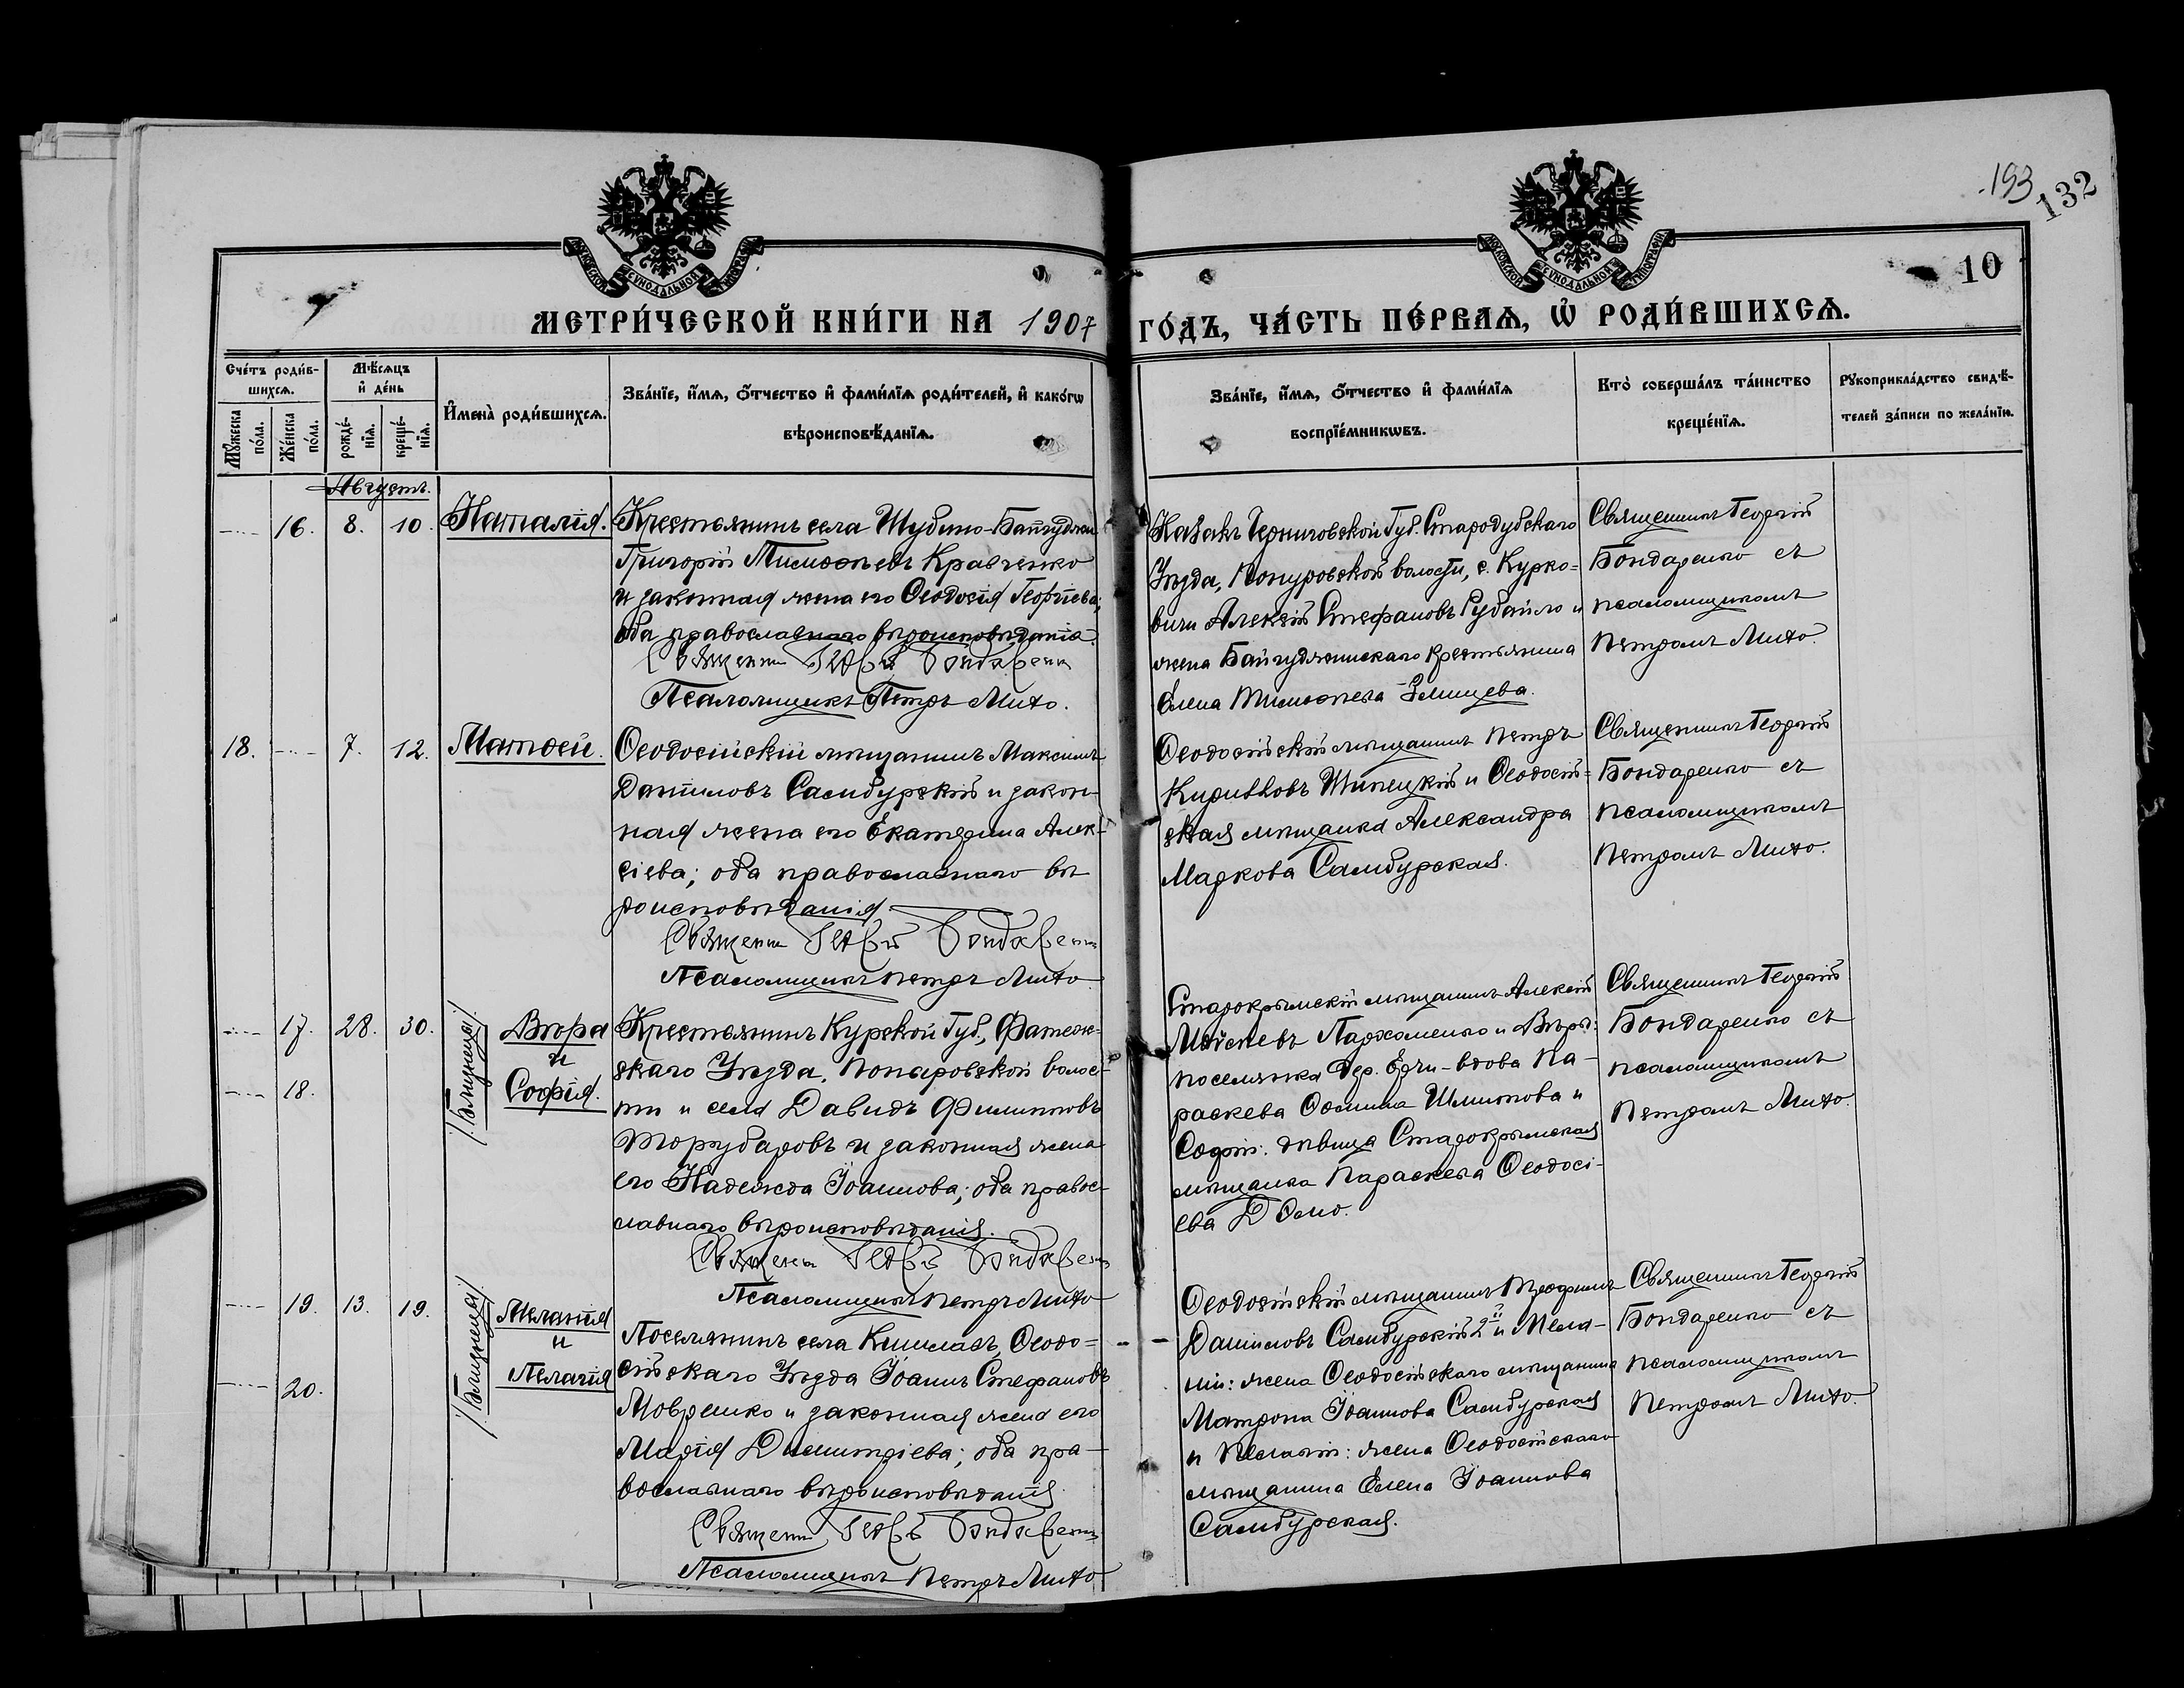 193
132
10
МОСКОВСКОЙ СѴНОДАЛЬНОЙ ТИПОГРАФІИ
МОСКОВСКОЙ СѴНОДАЛЬНОЙ ТИПОГРАФІИ
МЕТРИ́ЧЕСКОЙ КНИ́ГИ НА 1907 ГО́ДЪ, ЧА́СТЬ ПЕ́РВАѦ, Ѽ РОДИ́ВШИХСѦ.
Сче́тъ роди́в-
шихсѧ.
Мꙋ́жеска по́ла.
Же́нска по́ла.
Мѣ́сѧцъ
и҆ де́нь
рожде́-
нїѧ.
креще́-
нїѧ.
И҆мена̀ роди́вшихсѧ.
Зва́нїе, и҆́мѧ, ѻ҆́тчество и҆ фами́лїѧ роди́телей, и҆ како́гѡ
вѣроисповѣ́данїѧ.
Зва́нїе, и҆́мѧ, ѻ҆́тчество и҆ фами́лїѧ
воспрїе́мникѡвъ.
Кто̀ соверша́лъ та́инство
креще́нїѧ.
Рꙋкоприкла́дство свидѣ́-
телей за́писи по жела́нїю.
Августъ.
16. 8. 10. Наталія.
Крестьянинъ села Шубино-Байгуджи
Григорій Тимоѳеевъ Кравченко
и законная жена его Ѳеодосія Георгіева;
оба православнаго вѣроисповѣданія.
Священникъ Георгій Бондаренко
Псаломщикъ Петръ Мито.
Казакъ Черниговской Губ. Стародубскаго
Уѣзда, Понуровской волости, с. Курко-
вичи Алексій Стефановъ Рубайло и
жена Байгуджинскаго крестьянина
Елена Тимоѳеева
Священникъ Георгій
Бондаренко съ
псаломщикомъ
Петромъ Мито.
18. 7. 12. Матѳей.
Ѳеодосійскій мѣщанинъ Максимъ
Даниловъ Самбурскій и закон-
ная жена его Екатерина Алек-
сіева; оба православнаго вѣ
роисповѣданія.
Священникъ Георгій Бондаренко
Псаломщикъ Петръ Мито
Ѳеодосійскій мѣщанинъ Петръ
Кирилловъ Шипецкій и Ѳеодосій-
ская мѣщанка Александра
Маркова Самбурская.
Священникъ Георгій
Бондаренко съ
псаломщикомъ
Петромъ Мито.
17. 28. 30.
18.
/Близнецы/
Вѣра
и
Софія.
Крестьянинъ Курской Губ., Фатеж-
скаго Уѣзда, Поныровской волос-
ти и села Давидъ Филипповъ
Торубаровъ и законная жена
его Надежда Іоаннова; оба правос-
лавнаго вѣроисповѣданія.
Священникъ Георгій Бондаренко
Псаломщикъ Петръ Мито
Старокрымскій мѣщанинъ Алексій
Моѵсеевъ Пархоменко и Вѣры:
поселянка дер. вдова Па-
раскева Шлипова и
Софіи: дѣвица Старокрымская
мѣщанка Параскева Ѳеодосі-
ева
Священникъ Георгій
Бондаренко съ
псаломщикомъ
Петромъ Мито.
19. 13. 19.
20.
/Близнецы/
Меланія
и
Пелагія
Поселянинъ села Кишлавъ, Ѳеодо-
сійскаго Уѣзда Іоаннъ Стефановъ
Мовренко и законная жена его
Марія Димитріева; оба пра-
вославнаго вѣроисповѣданія
Священникъ Георгій Бондаренко
Псаломщикъ Петръ Мито
Ѳеодосійскій мѣщанинъ Трофимъ
Даниловъ Самбурскій 2й и Мела-
ніи: жена Ѳеодосійскаго мѣщанина
Матрона Іоаннова Самбурская
и Пелагіи: жена Ѳеодосійскаго
мѣщанина Елена Іоаннова
Самбурская.
Священникъ Георгій
Бондаренко съ
псаломщикомъ
Петромъ Мито.